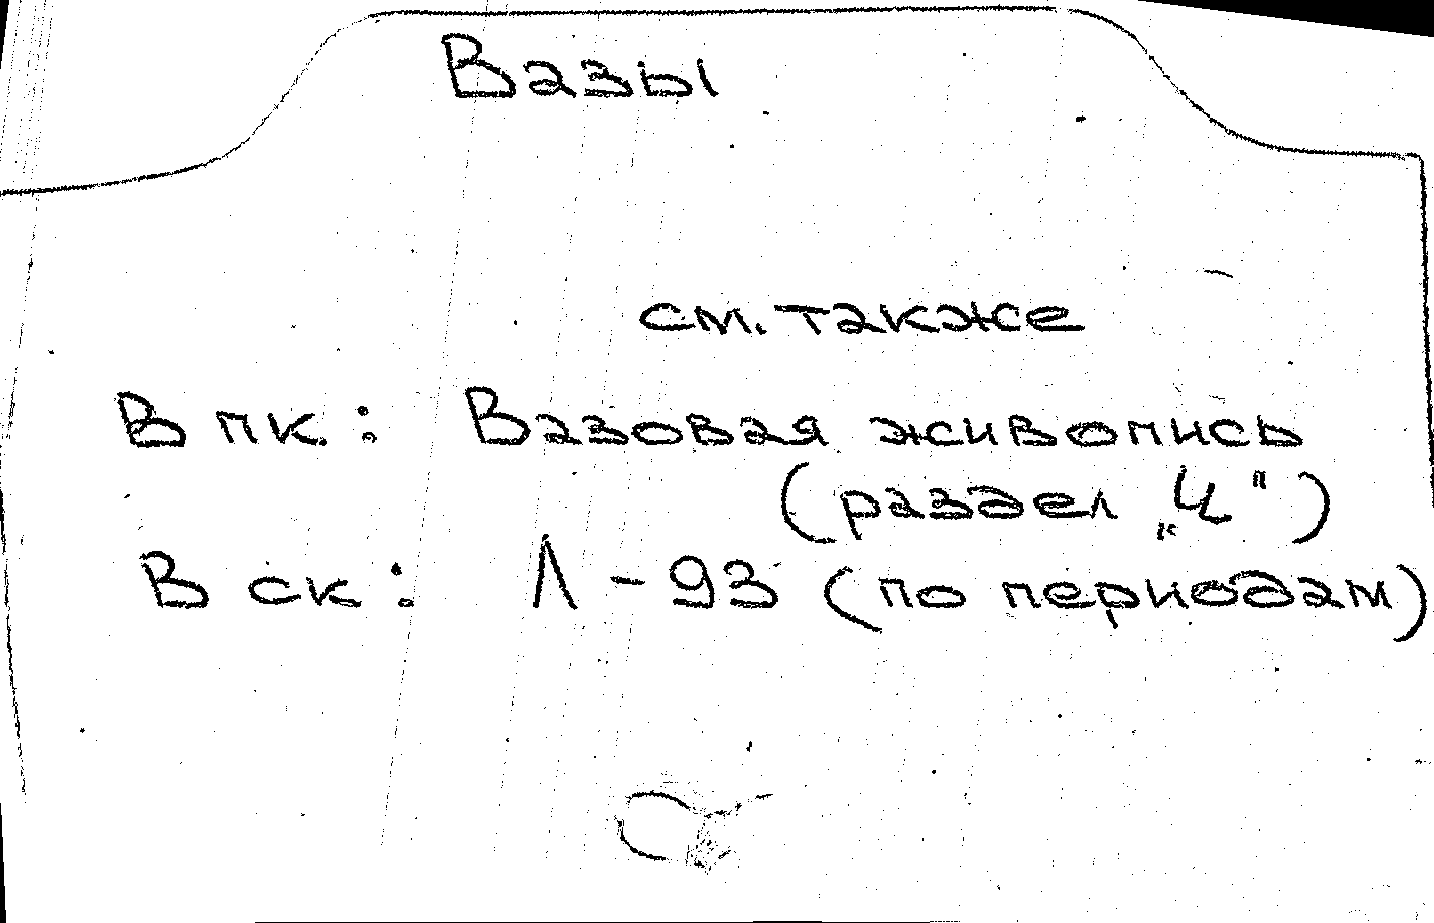 Вазы
см. также
В пк.: Вазовая живопись
(раздел „Ч")
В ск.: Л-93 (по периодам)